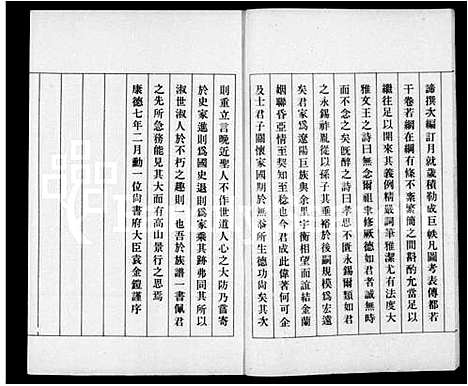 諦撰次編訂月就歲積勒成巨帙凡圖考表傳都若
干卷若網在綱有條不紊繁簡之間斟酌尤當足以
繼往足以開來其義例精嚴詞筆雅潔尤有法度大
雅文王之詩曰無念爾祖聿修厥德如君者誠無時
而不念之矣既醉之詩曰孝思不匱永錫爾類如君
之永錫祚胤從以孫子其垂裕於後嗣規模為宏遠
矣君家為遼陽巨族與余里宇衡相望而誼結金蘭
姻聯昏亞情至契知至稔今君成此偉著何可無
及士君子關懷家國期於無忝所生德功尚矣其次
則重立言晚近聖人不作世道人心之大防乃當寄
於史家進則為國史退則為家乘其跡弗同其所以
淑世淑人於不朽之趣則一也吾於族譜一書佩君
之先所急務能見其大而有高山景行之思焉
康德七年二月勳一位尚書府大臣袁金鎧謹序